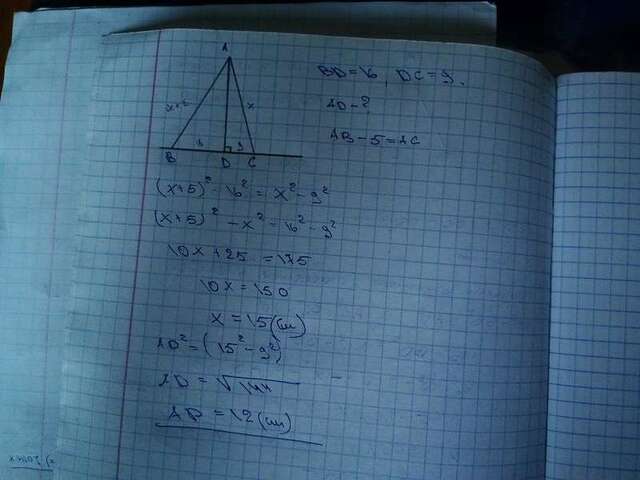 A
BD = 16, DC = 9.
AD - ?
AB - 5 = AC
x
9
B D C
(x+5)² - 16² = x² - 9²
(x+5)² - x² = 16² - 9²
10x + 25 = 175
10x = 150
x = 15 (см)
AD² = (15² - 9²)
AD = √144
AD = 12 (см)